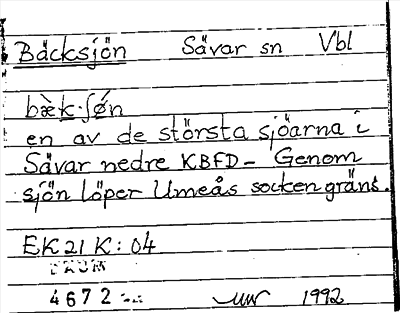 Bäcksjön Sävar sn Vbl
bæ̀k·ʃǿn
en av de största sjöarna i
Sävar nedre KBFD – Genom
sjön löper Umeås sockengräns.
EK 21 K: 04
DAUM
4672
1992